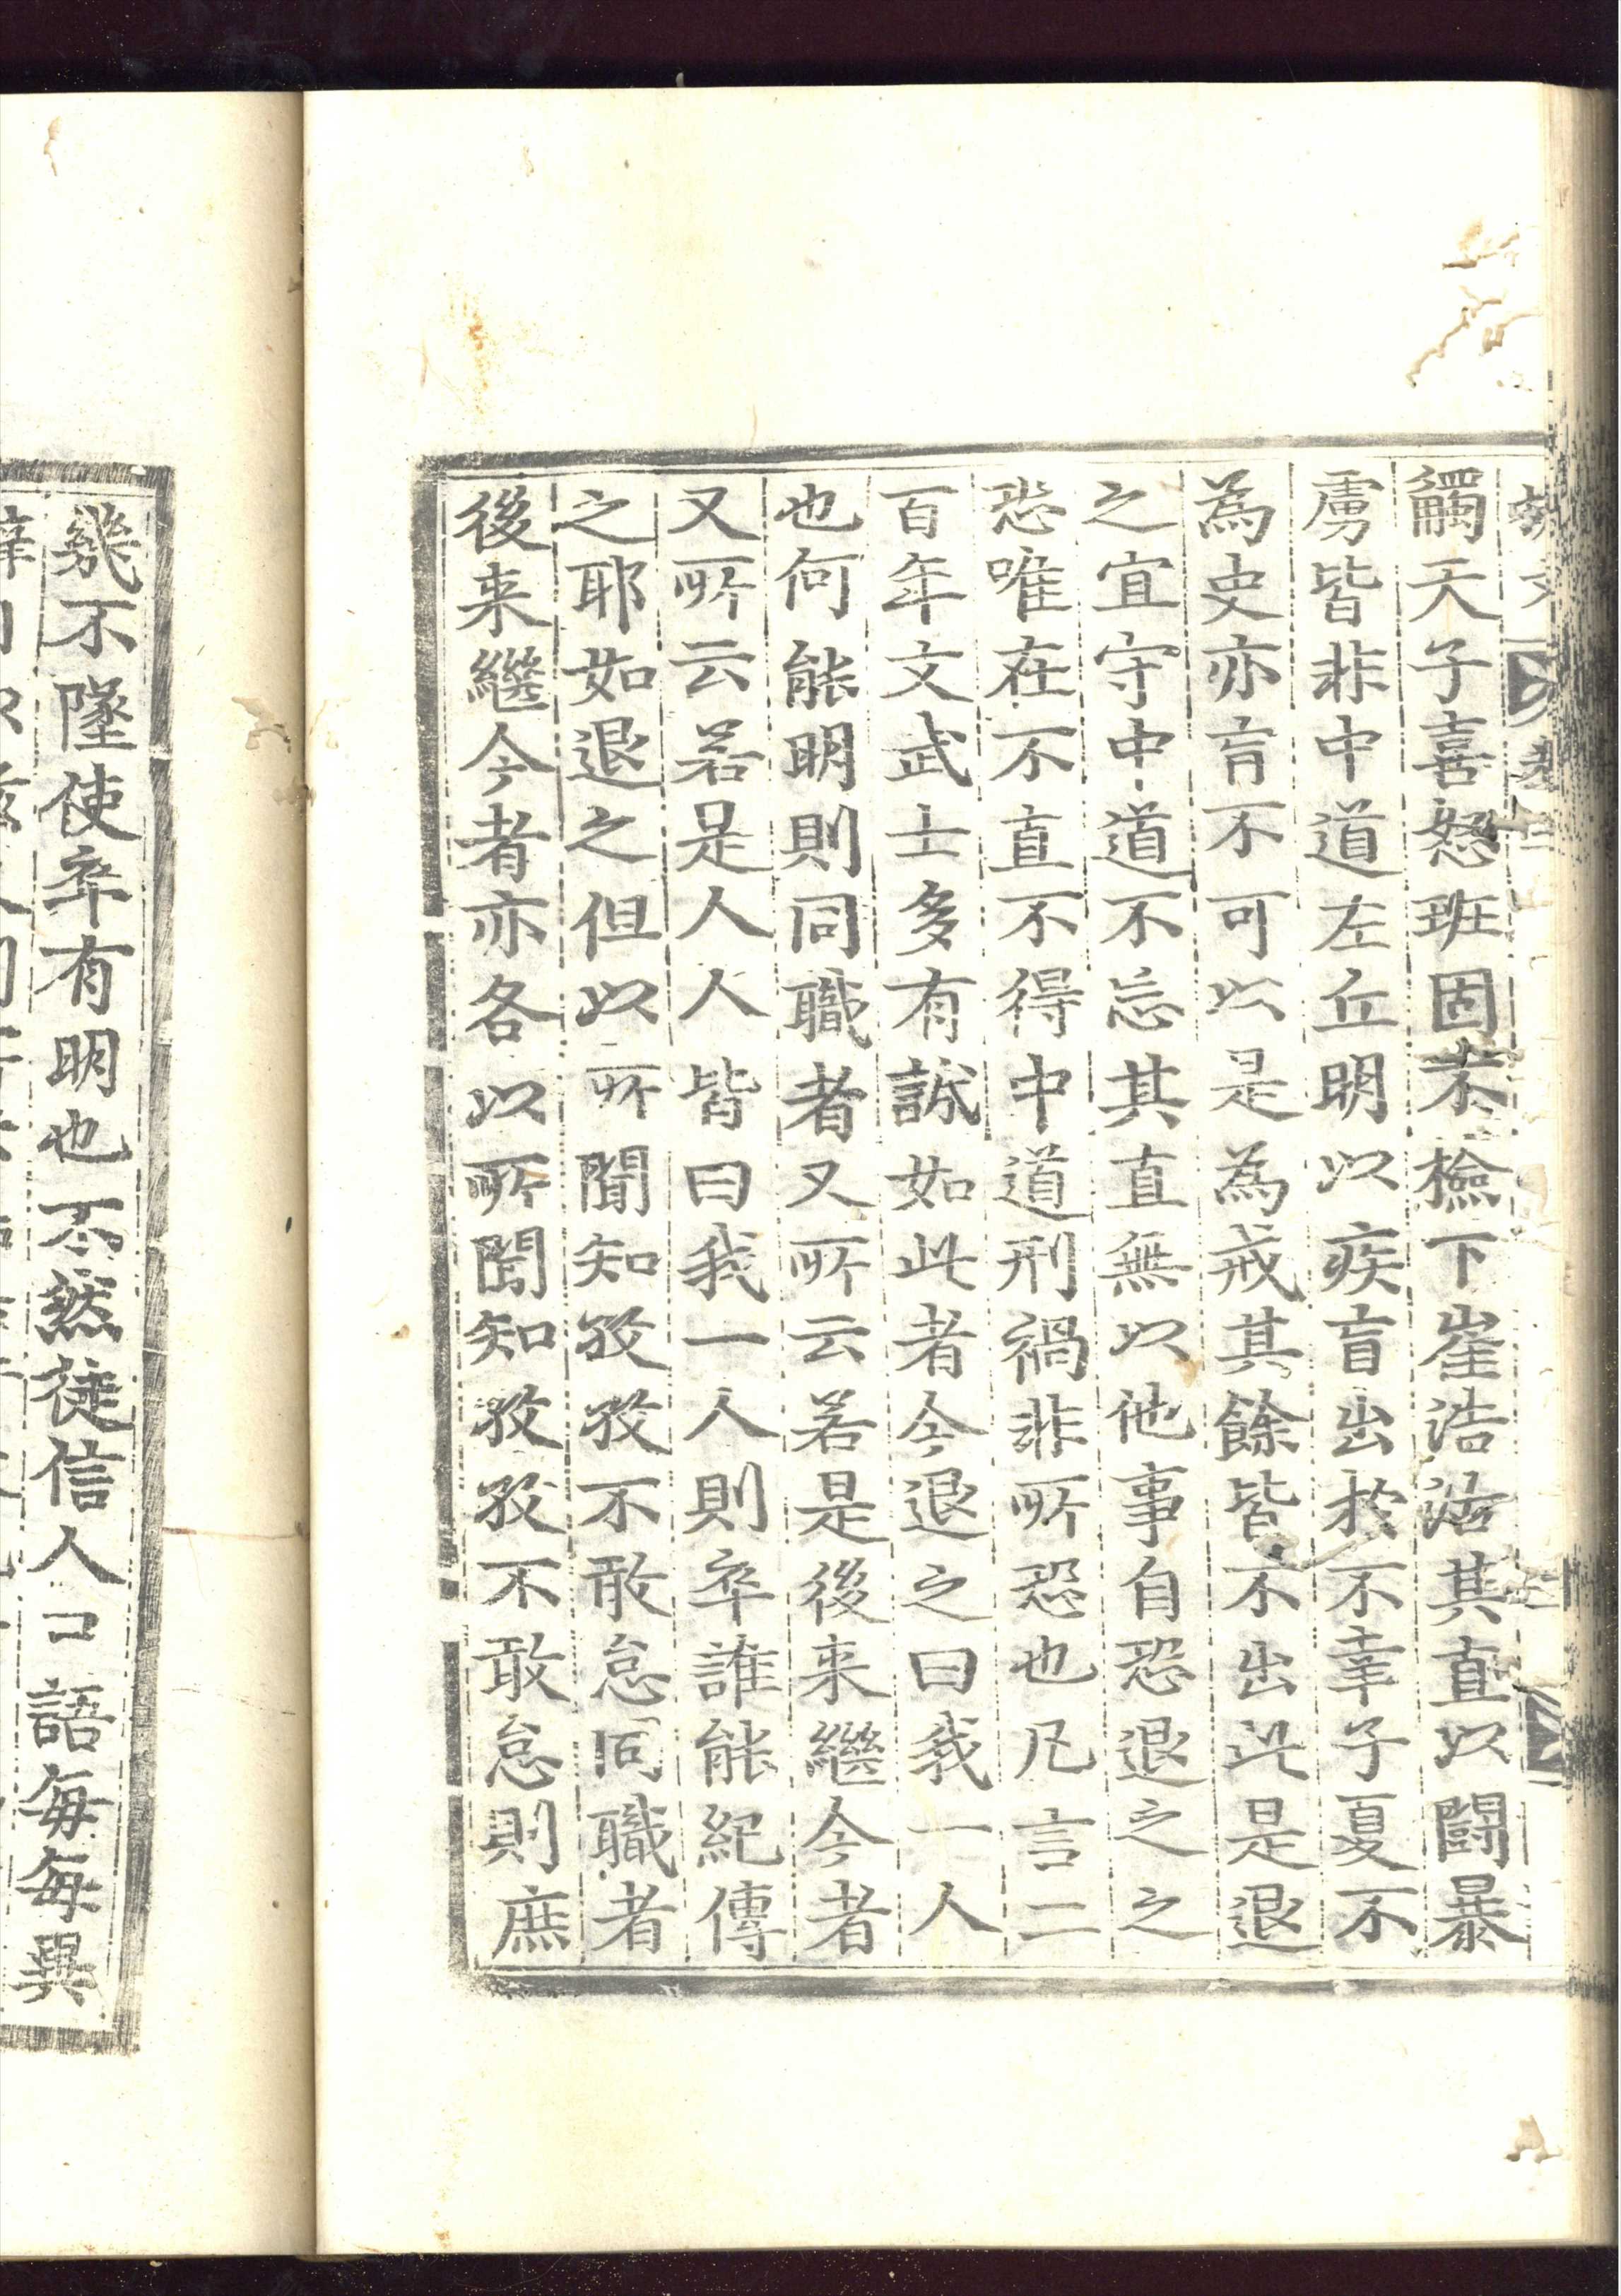 觸天子喜怒班固不檢下崔浩沽其直以鬪暴
虜皆非中道左丘明以疾盲出於不幸子夏不
為史亦盲不可以是為戒其餘皆不出此是退
之宜守中道不忘其直無以他事自恐退之之
恐唯在不直不得中道刑禍非所恐也凡言二
百年文武士多有誠如此者今退之曰我一人
也何能明則同職者又所云若是後来繼今者
又所云若是人人皆曰我一人則卒誰能紀傳
之耶如退之但以所聞知孜孜不敢怠同職者
後来繼今者亦各以所聞知孜孜不敢怠則庶
幾不墜使卒有明也不然徒信人口語每每異